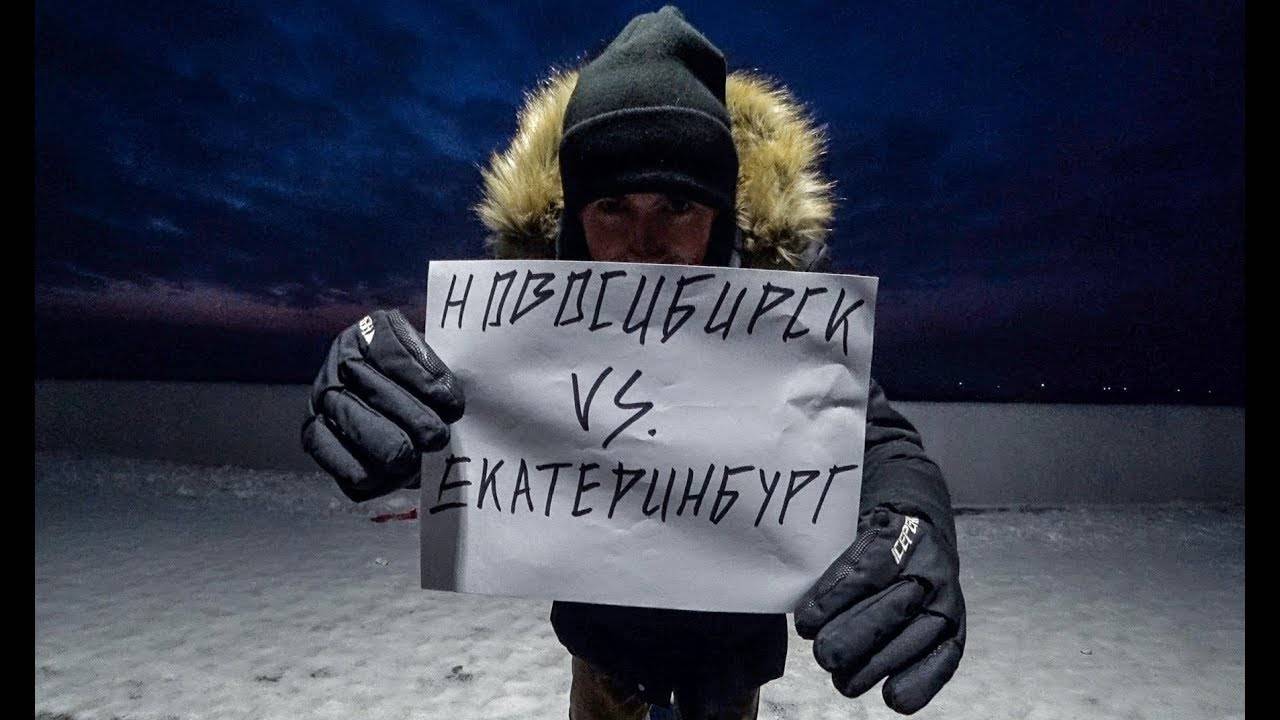 НОВОСИБИРСК
VS.
ЕКАТЕРИНБУРГ
ICEPEAK